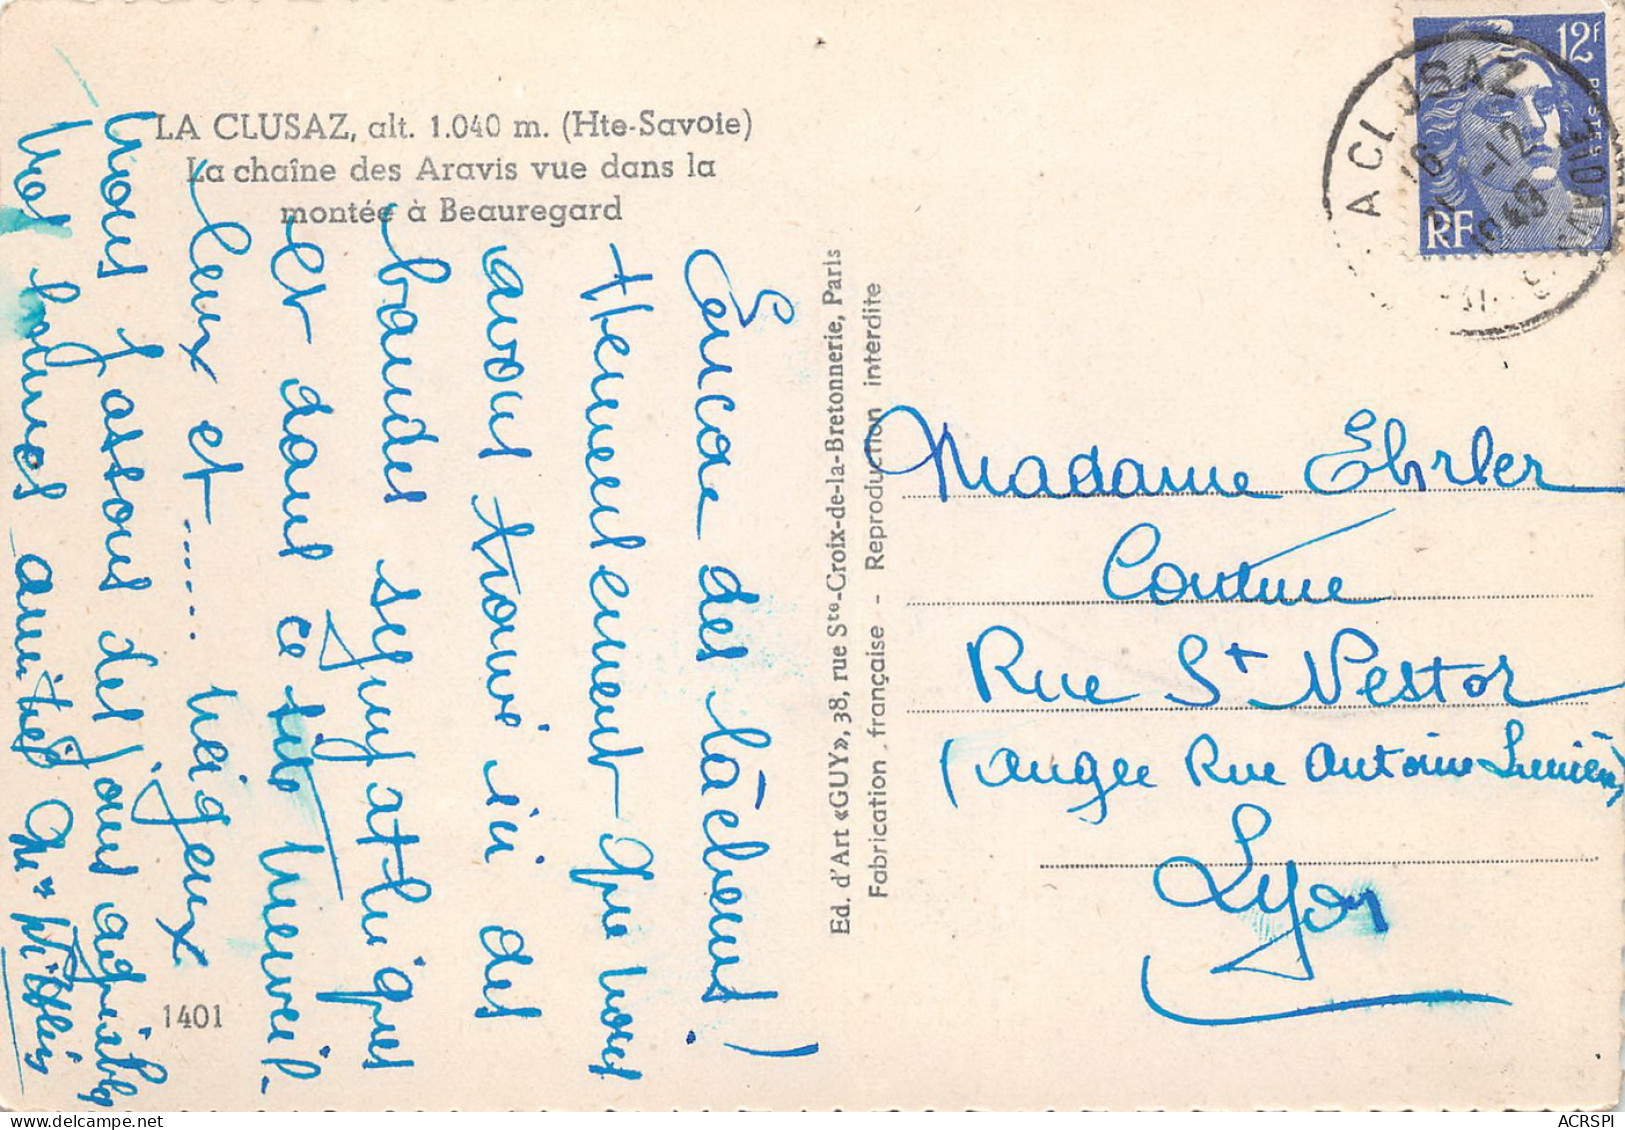 LA CLUSAZ, alt. 1.040 m. (Hte-Savoie)
La chaîne des Aravis vue dans la
montée à Beauregard
Encore des lâcheurs!
Heureusement que nous
avons trouvé ici des
bandes sympathiques
et dans ce site merveil-
leux et ...... neigeux
nous passons des jours agréables
Nos bonnes amitiés
1401
Ed. d'Art «GUY», 38, rue Ste-Croix-de-la-Bretonnerie, Paris
Fabrication française - Reproduction interdite
12F
POSTES
RF
LA CLUSAZ
16
-12
1949
Madame Ehrler
Couture
Rue St Nestor
(angle Rue Antoine Lumière)
Lyon
ACRSPI